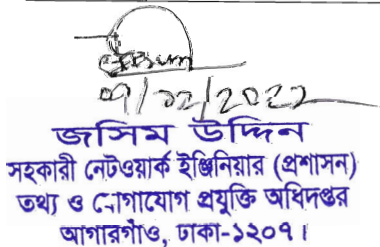 09/02/2022
জসিম উদ্দিন
সহকারী নেটওয়ার্ক ইঞ্জিনিয়ার (প্রশাসন)
তথ্য ও যোগাযোগ প্রযুক্তি অধিদপ্তর
আগারগাঁও, ঢাকা-১২০৭।